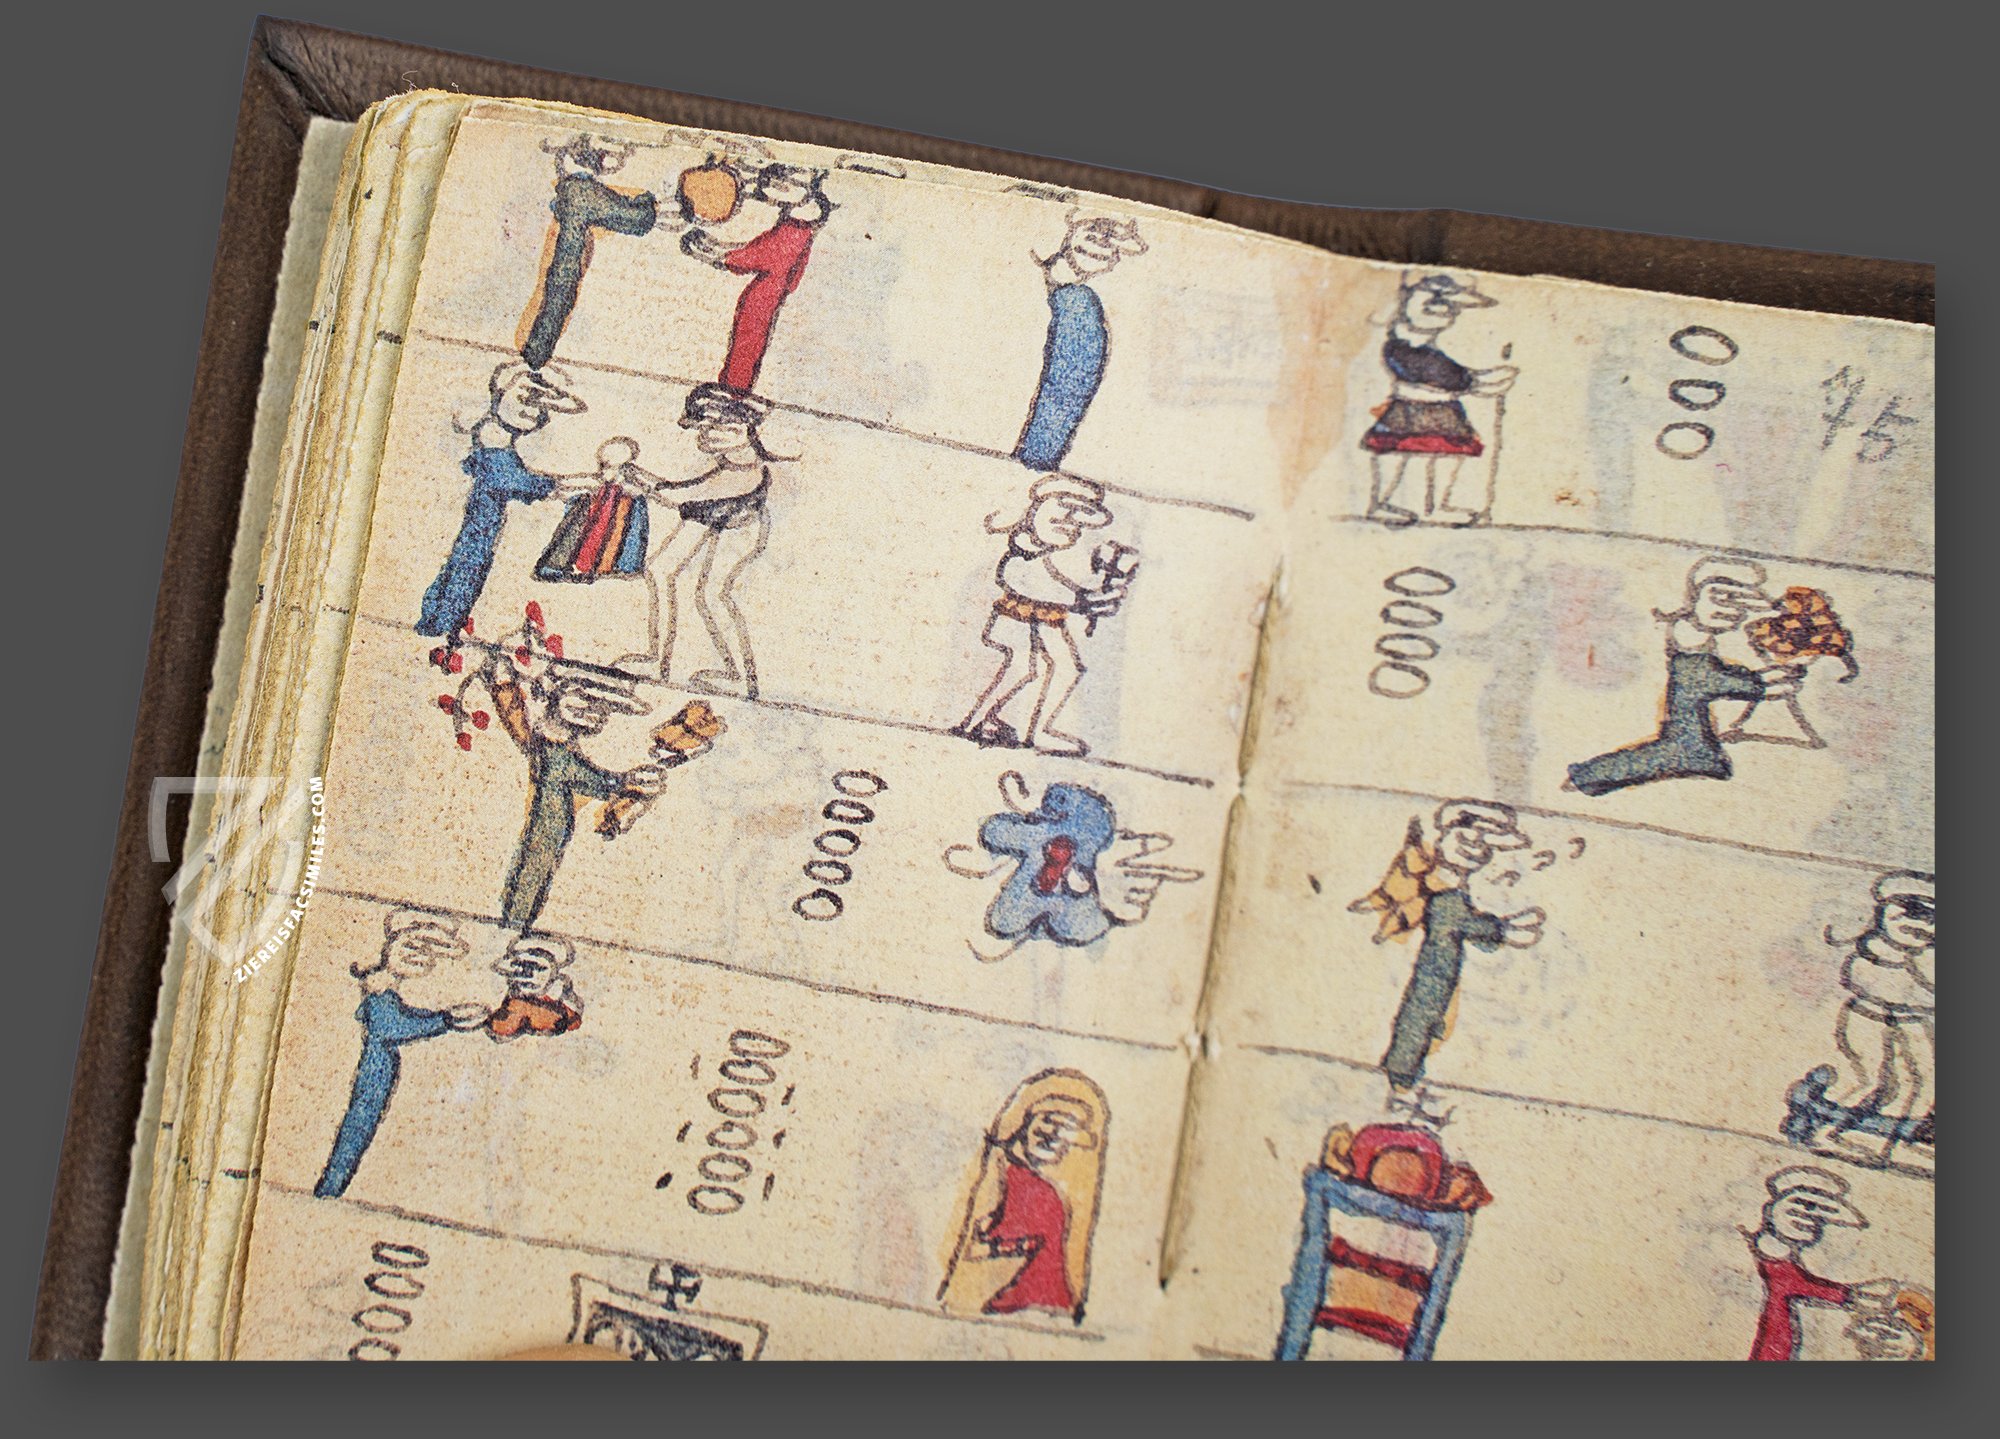 45
ZIEREISFACSIMILES.COM